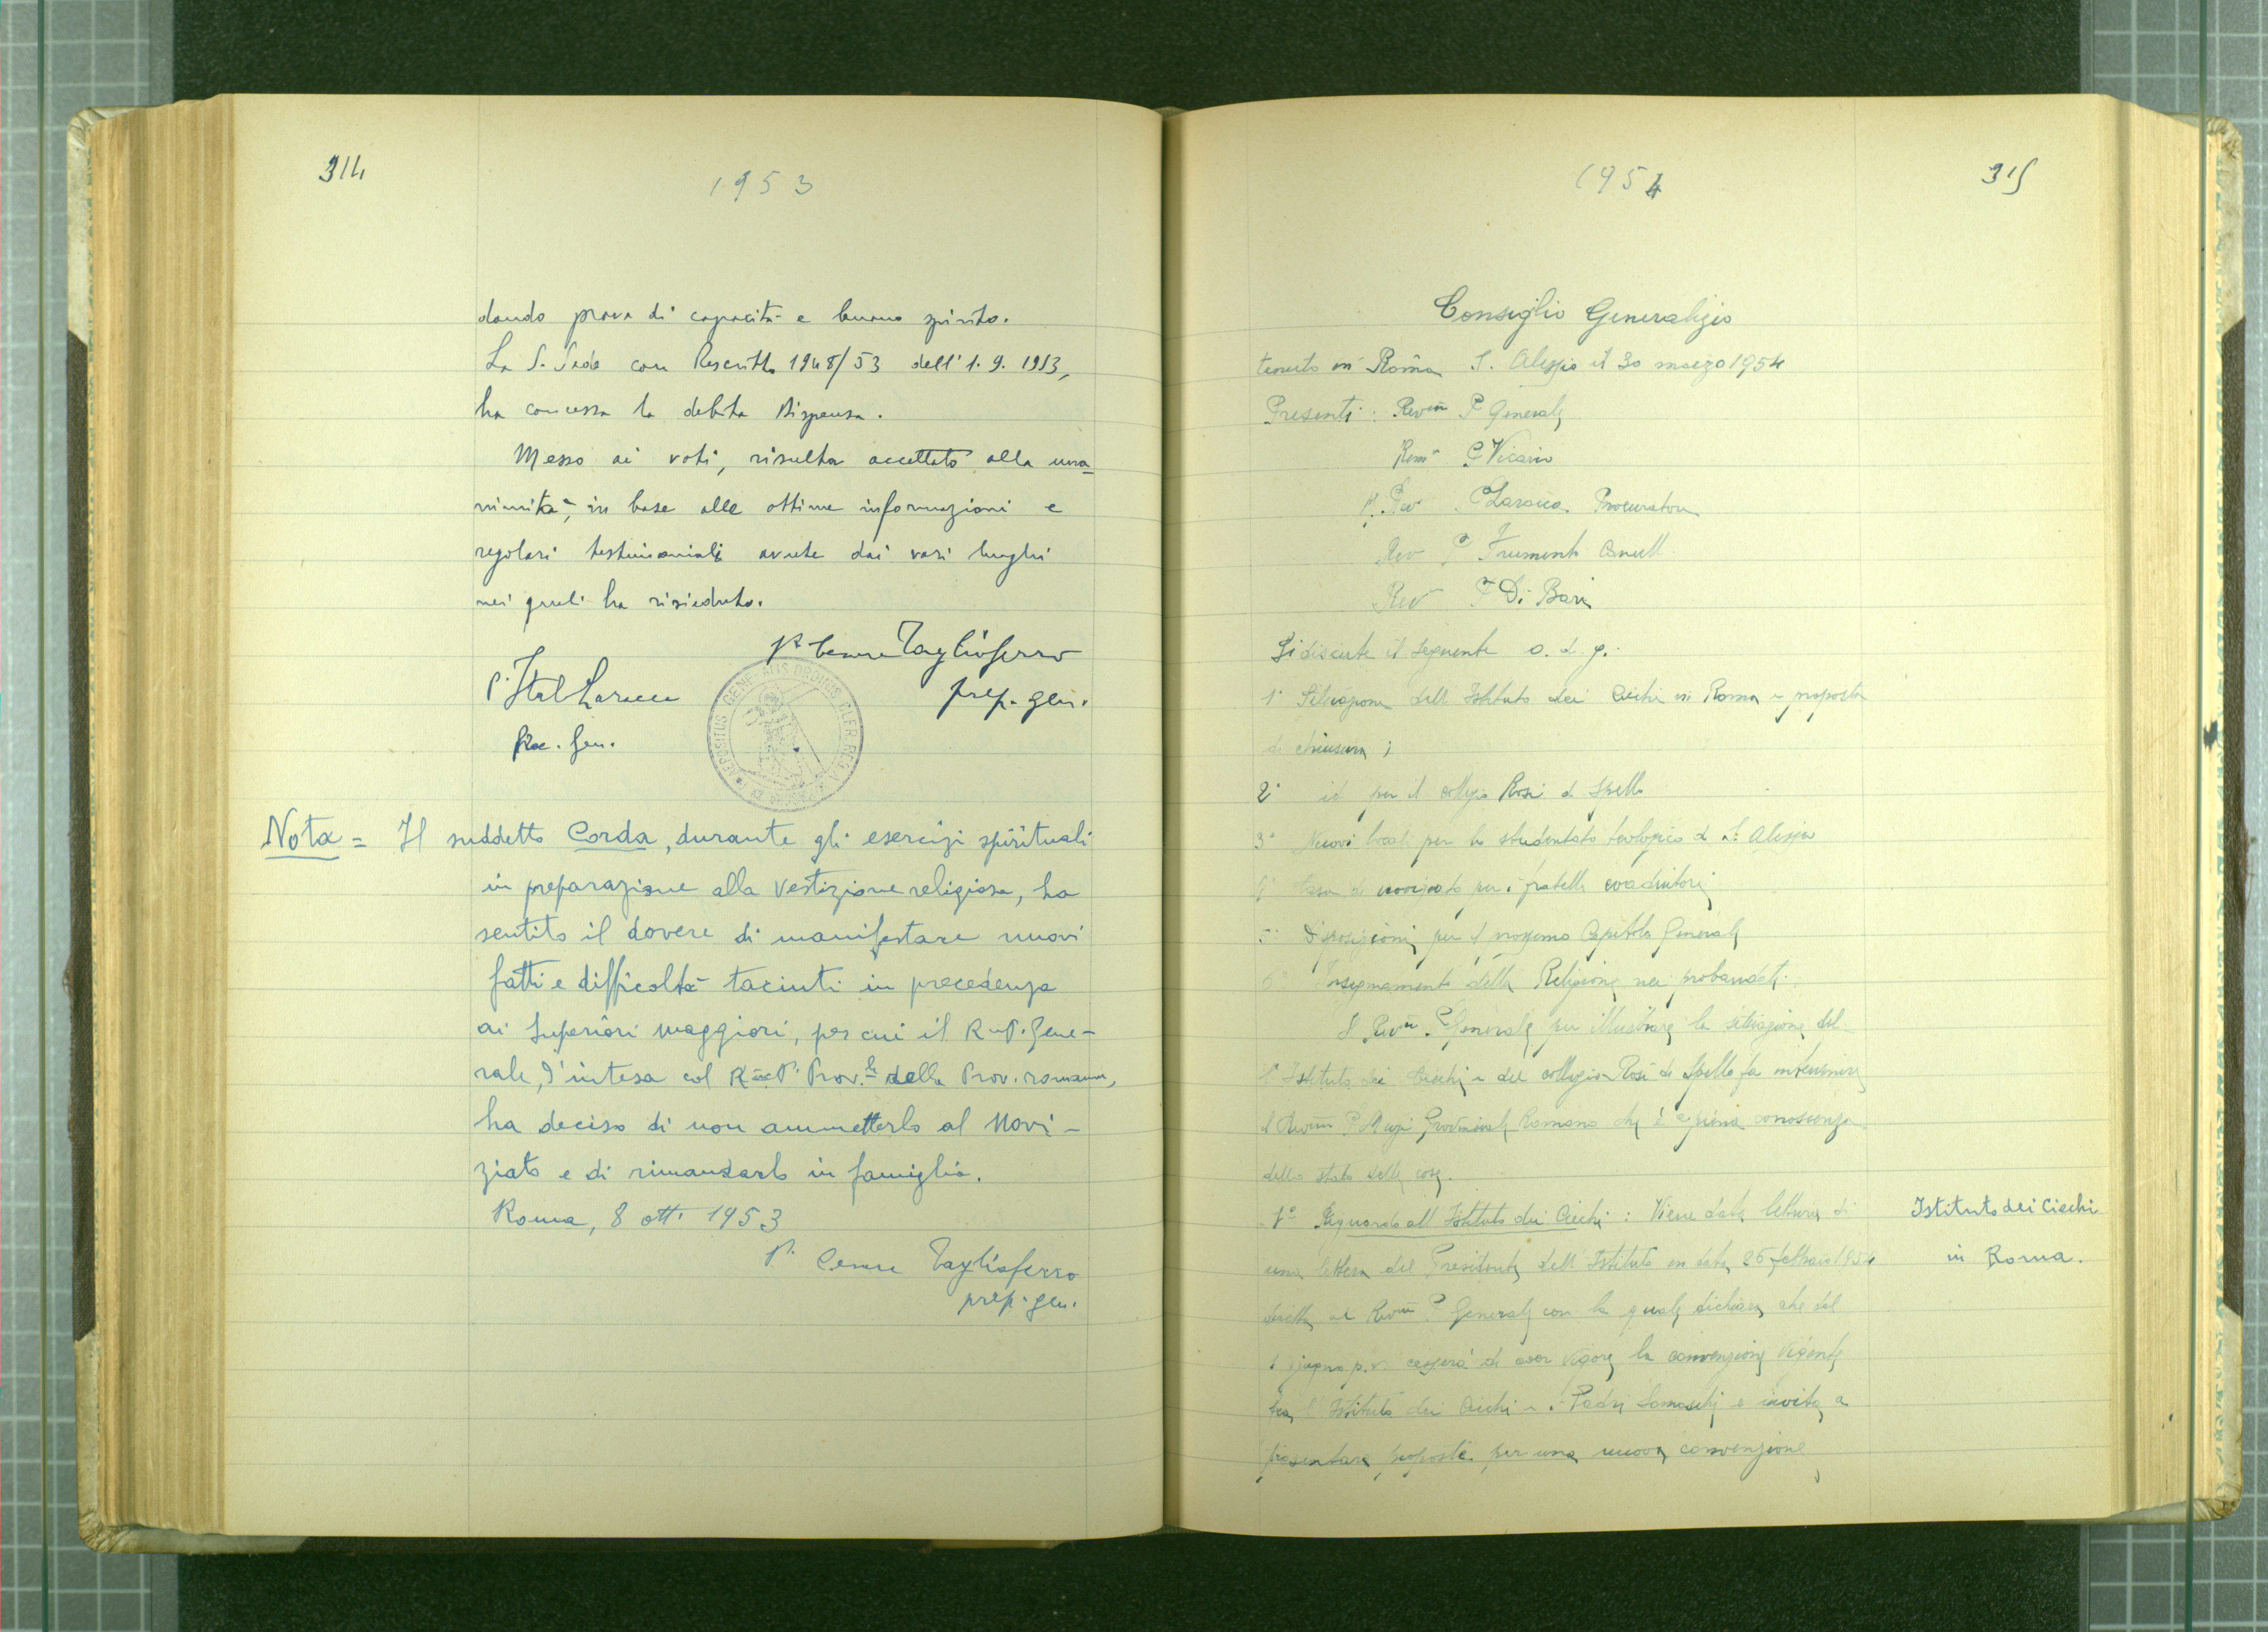 314
1953
dando prova di capacità e buono spirito.
La S. Sede con Rescritto 1948/53 dell' 1. 9. 1953,
ha concessa la debita dispensa.
Messo ai voti, risulta accettato alla una-
nimità, in base alle ottime informazioni e
regolari testimoniali avute dai vari luoghi
nei quali ha risieduto.
P. Cesare Tagliaferro
prep. gen.
P. Ital Laracca
Proc. Gen.
Nota = Il suddetto Corda, durante gli esercizi spirituali
in preparazione alla vestizione religiosa, ha
sentito il dovere di manifestare nuovi
fatti e difficoltà taciuti in precedenza
ai Superiori maggiori, per cui il R.mo P. Gene-
rale, d'intesa col R.mo P. Prov.le della Prov. romana,
ha deciso di non ammetterlo al Novi-
ziato e di rimandarlo in famiglia.
Roma, 8 ott. 1953
P. Cesare Tagliaferro
prep. gen.
1954
315
Consiglio Generalizio
tenuto in Roma S. Alessio il 30 marzo 1954
Presenti: Rev.m P. Generale
Rev.m P. Vicario
M. Rev P. Laracca Procuratore
Rev P. Frumento
Rev P. Di Bari
Si discute il seguente o. d. g.:
1° Situazione dell'Istituto dei Ciechi in Roma e proposta
di chiusura;
2° id per il collegio Rosi di Spello
3° Nuovi locali per lo studentato teologico di S. Alessio
4° Casa di noviziato per i fratelli coadiutori
5° Disposizioni per il prossimo Capitolo Generale
6° Insegnamento della Religione nei probandati.
Il Rev.m P. Generale per illustrare la situazione del-
l'Istituto dei Ciechi e del collegio Rosi di Spello fa intervenire
il Rev.m P. Provinciale Romano che è a piena conoscenza
dello stato delle cose.
1° Riguardo all'Istituto dei Ciechi: Viene data lettura di
una lettera del Presidente dell'Istituto in data 26 febbraio 1954
diretta al Rev.m P. Generale con la quale dichiara che dal
1 giugno p. v. cesserà di aver vigore la convenzione vigente
tra l'Istituto dei Ciechi e i Padri Somaschi e invita a
presentare proposte per una nuova convenzione
Istituto dei Ciechi
in Roma.